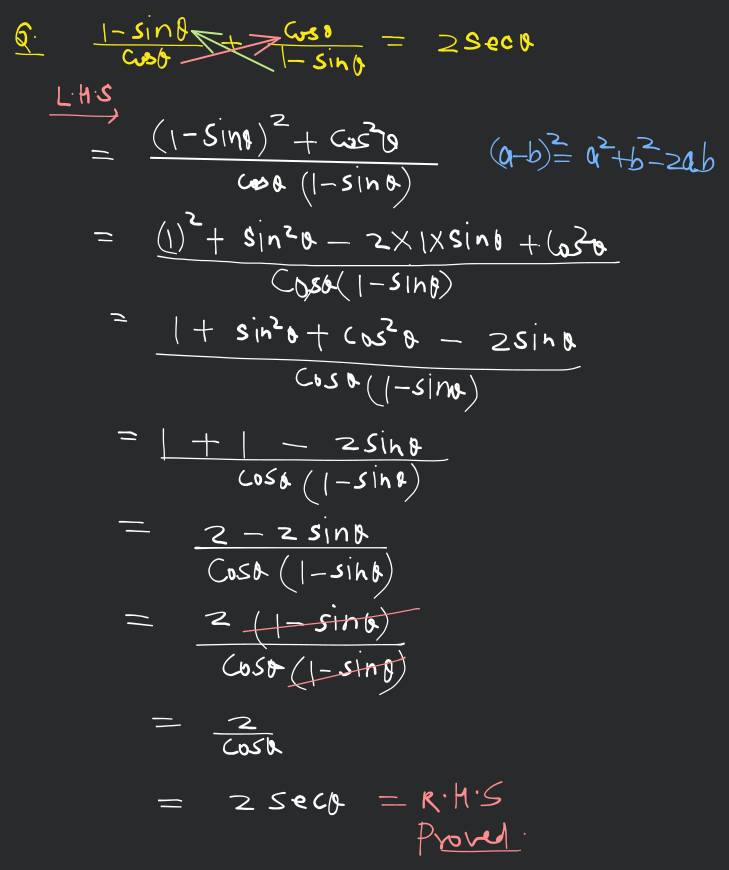 Q. (1-sinθ)/cosθ + cosθ/(1-sinθ) = 2secθ
L.H.S
= ((1-sinθ)² + cos²θ)/(cosθ (1-sinθ)) (a-b)² = a²+b²-2ab
= ((1)² + sin²θ - 2×1×sinθ + cos²θ)/(cosθ(1-sinθ))
= (1 + sin²θ + cos²θ - 2sinθ)/(cosθ(1-sinθ))
= (1 + 1 - 2sinθ)/(cosθ(1-sinθ))
= (2 - 2sinθ)/(cosθ(1-sinθ))
= (2(1-sinθ))/(cosθ(1-sinθ))
= 2/cosθ
= 2secθ = R.H.S
Proved.